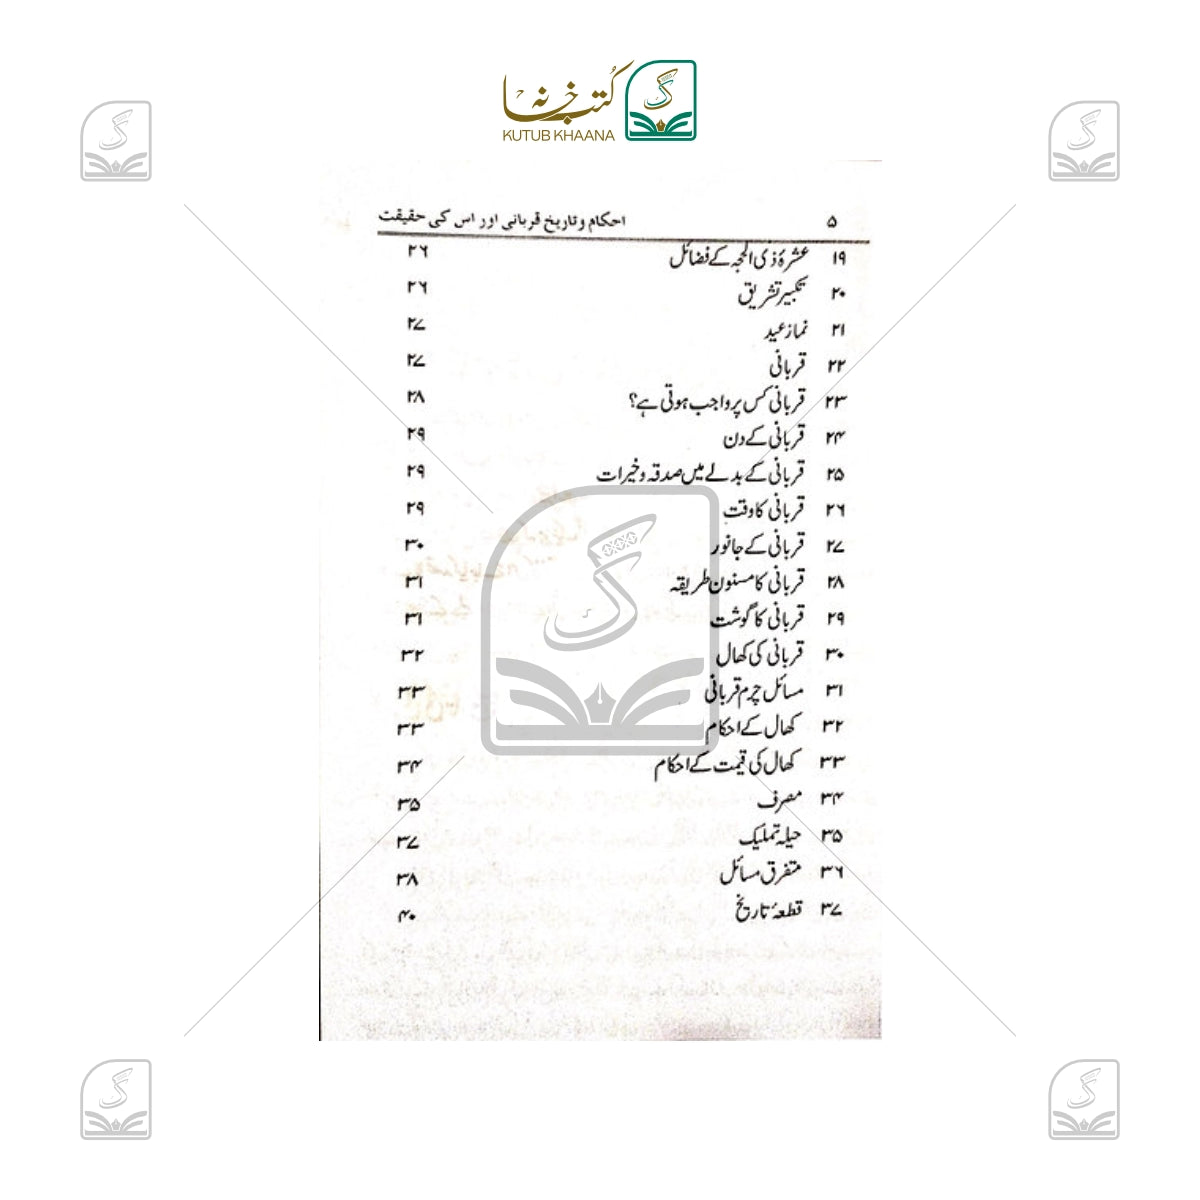 کتب خانہ
KUTUB KHAANA
۵ احکام و تاریخ قربانی اور اس کی حقیقت
۱۹ عشرۂ ذی الحجہ کے فضائل ۲۶
۲۰ تکبیر تشریق ۲۶
۲۱ نماز عید ۲۷
۲۲ قربانی ۲۷
۲۳ قربانی کس پر واجب ہوتی ہے؟ ۲۸
۲۴ قربانی کے دن ۲۹
۲۵ قربانی کے بدلے میں صدقہ وخیرات ۲۹
۲۶ قربانی کا وقت ۲۹
۲۷ قربانی کے جانور ۳۰
۲۸ قربانی کا مسنون طریقہ ۳۱
۲۹ قربانی کا گوشت ۳۱
۳۰ قربانی کی کھال ۳۲
۳۱ مسائل چرم قربانی ۳۳
۳۲ کھال کے احکام ۳۳
۳۳ کھال کی قیمت کے احکام ۳۴
۳۴ مصرف ۳۵
۳۵ حیلہ تملیک ۳۷
۳۶ متفرق مسائل ۳۸
۳۷ قطعۂ تاریخ ۴۰